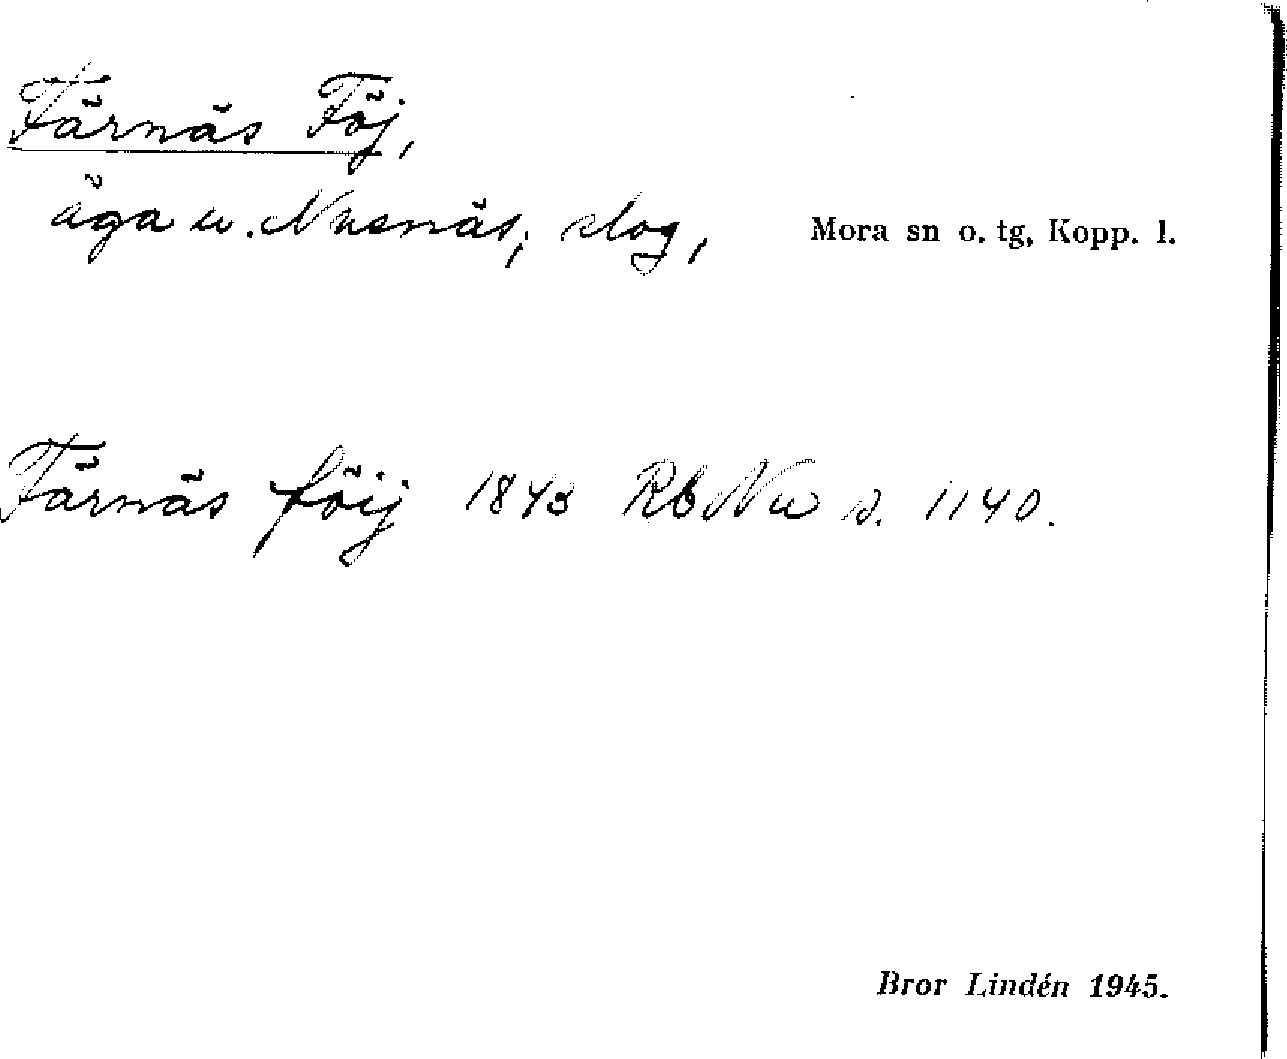 Färnäs Föj,
äga u. Nusnäs, slog, Mora sn o. tg, Kopp. l.
Färnäs föij 1843 Rb Nu s. 1140.
Bror Lindén 1945.